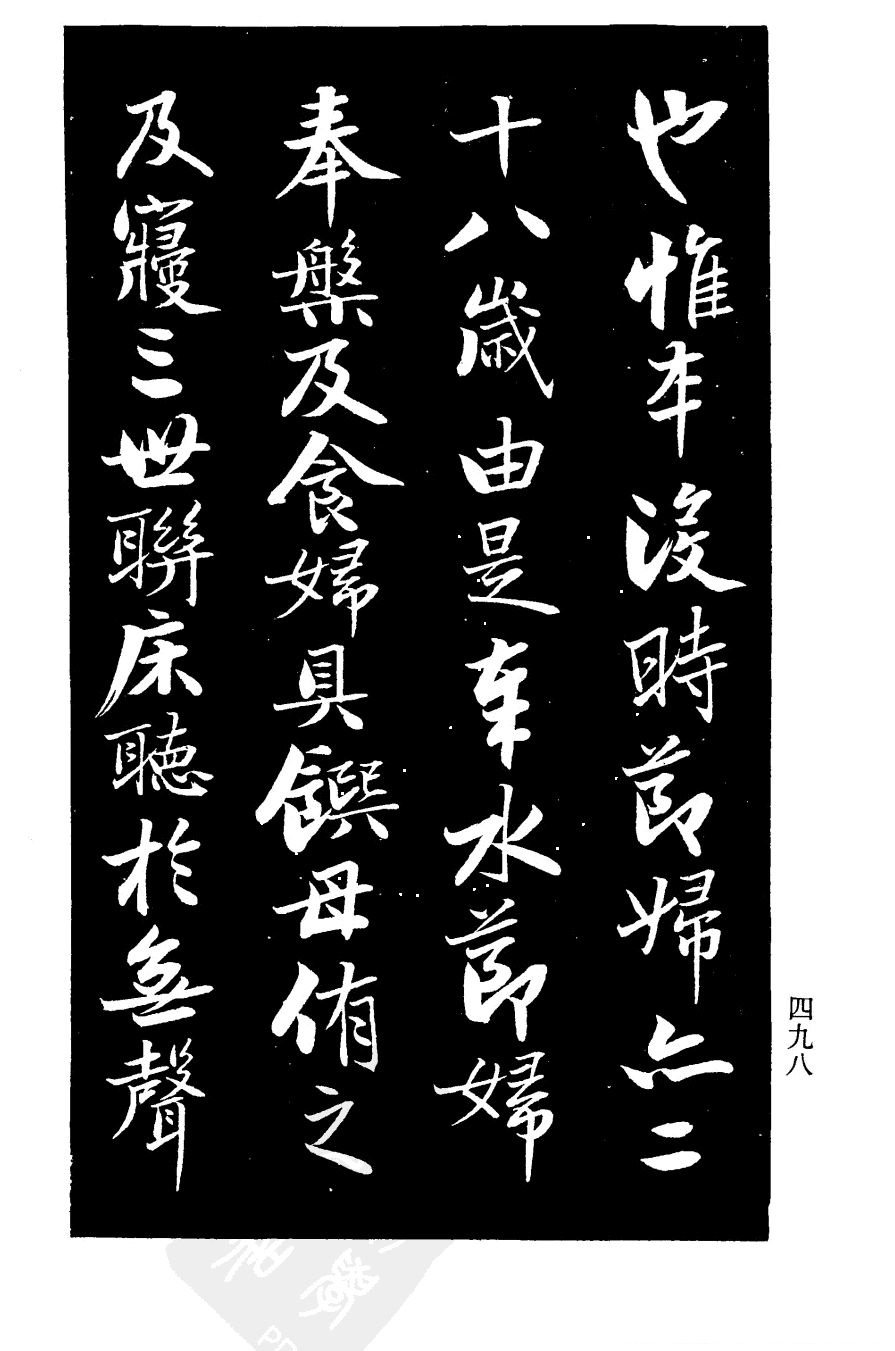 也惟本沒時節婦亦二
十八歲由是奉水節婦
奉槃及食婦具饌母侑之
及寢三世聯床聽於無聲
四九八